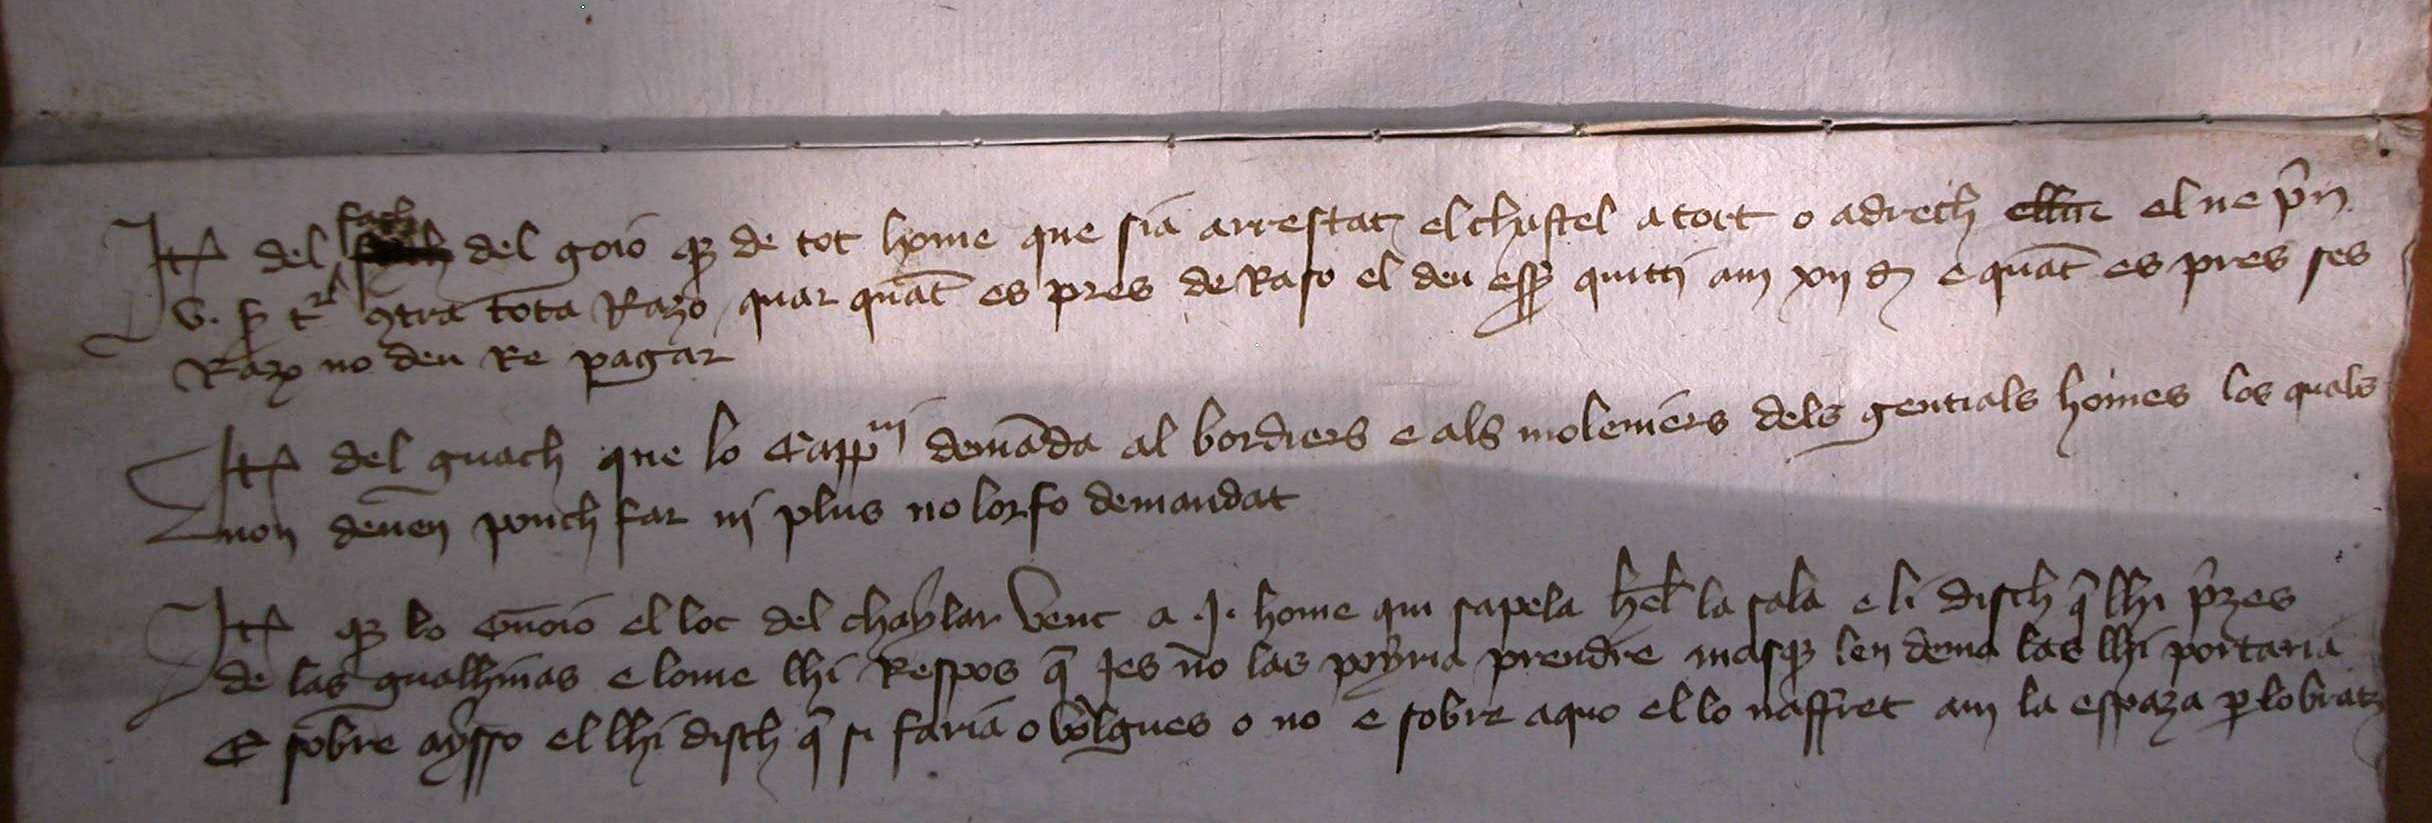 Itm del fach del goio q de tot home que sia arrestat el chastel a tort o adrech ellue el ne pn
v. s tr contra tota Razo quar quat es pres de Raso el deu esser quitti am xii d e quat es pres ses
Razo no deu Re pagar
Itm del guach que lo Capp demada al bordiers e als moleniers dels gentials homes los quals
non deuen ponch far ni plus no lor fo demandat
Itm q lo goio el loc del chaylar venc a .I. home qui sapela la sala e li disch q lhi przes
de las gualhinas e lome lhi Respos q ies no las poyria prendre mas q len dema las lhi portaria
E sobre aysso el lhi disch q si faria o volgues o no e sobre aquo el lo naffret am la espaza p lo bratz